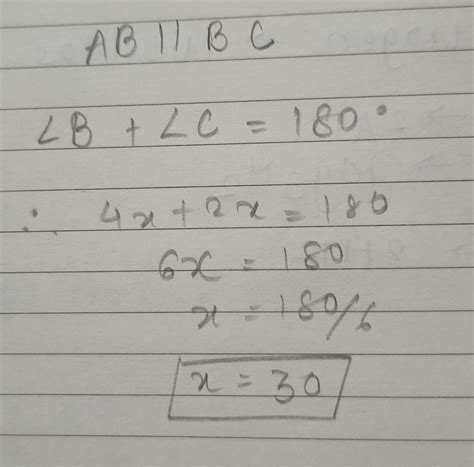 AB || BC
∠B + ∠C = 180°
∴ 4x + 2x = 180
6x = 180
x = 180/6
x = 30